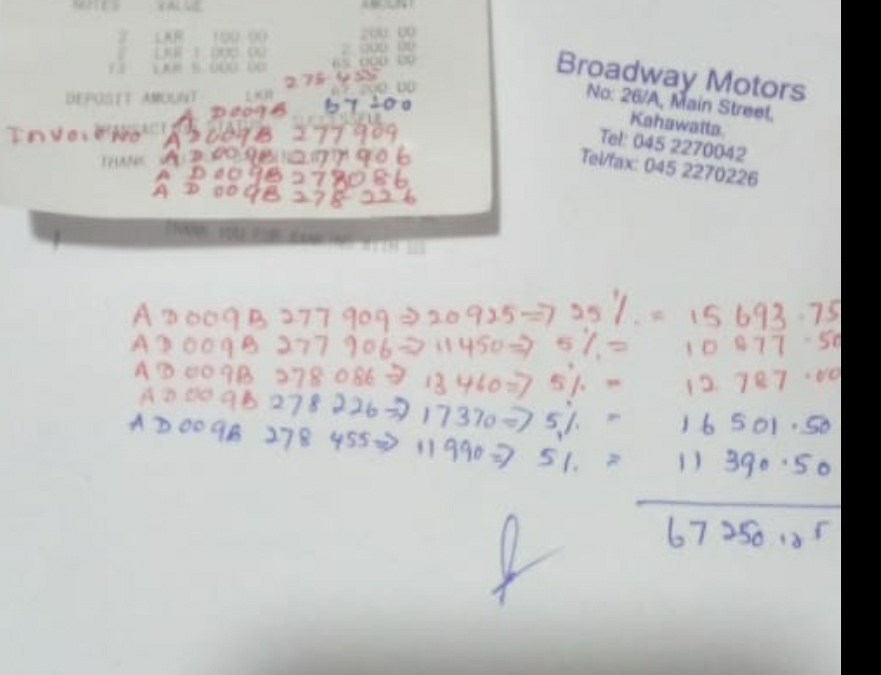 NOTES VALUE AMOUNT
2 LKR 100.00 200.00
2 LKR 1,000.00 2,000.00
13 LKR 5,000.00 65,000.00
275 455
DEPOSIT AMOUNT LKR 67,200.00
A D009B 67 200
SUCCESSFUL
Invoice No A D009B 277909
THANK A D009B 277906
A D009B 278086
A D009B 278 226
THANK YOU FOR BANKING WITH US
Broadway Motors
No: 26/A, Main Street,
Kahawatta.
Tel: 045 2270042
Tel/fax: 045 2270226
A D009B 277 909 ⇒ 20925 ⇒ 25 %. = 15 693.75
A D009B 277 906 ⇒ 11450 ⇒ 5 %. = 10 877.50
A D009B 278 086 ⇒ 13 460 ⇒ 5 %. = 12 787.00
A D009B 278 226 ⇒ 17370 ⇒ 5 %. = 16 501.50
A D009B 278 455 ⇒ 11990 ⇒ 5 %. = 11 390.50
67 250.25